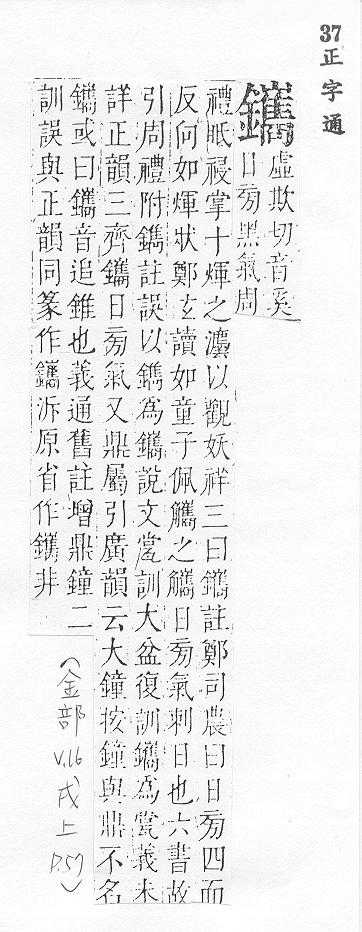 37
正字通
鑴
虛欺切音奚
日旁黑氣周
禮眡祲掌十煇之灋以觀妖祥三曰鑴註鄭司農曰日旁四面
反何如煇狀鄭玄讀如童子佩觿之觿日旁氣刺日也六書故
引周禮附鐫註誤以鐫爲鑴說文鴬訓大盆復訓鑴爲鴬義未
詳正韻三齊鑴日旁氣又鼎屬引廣韻云大鐘按鐘與鼎不名
鑴或曰鑴音追錐也義通舊註增鼎鐘二
訓誤與正韻同篆作鑴泝原省作鑴非
(金部
V.16
戌
上
P.57)